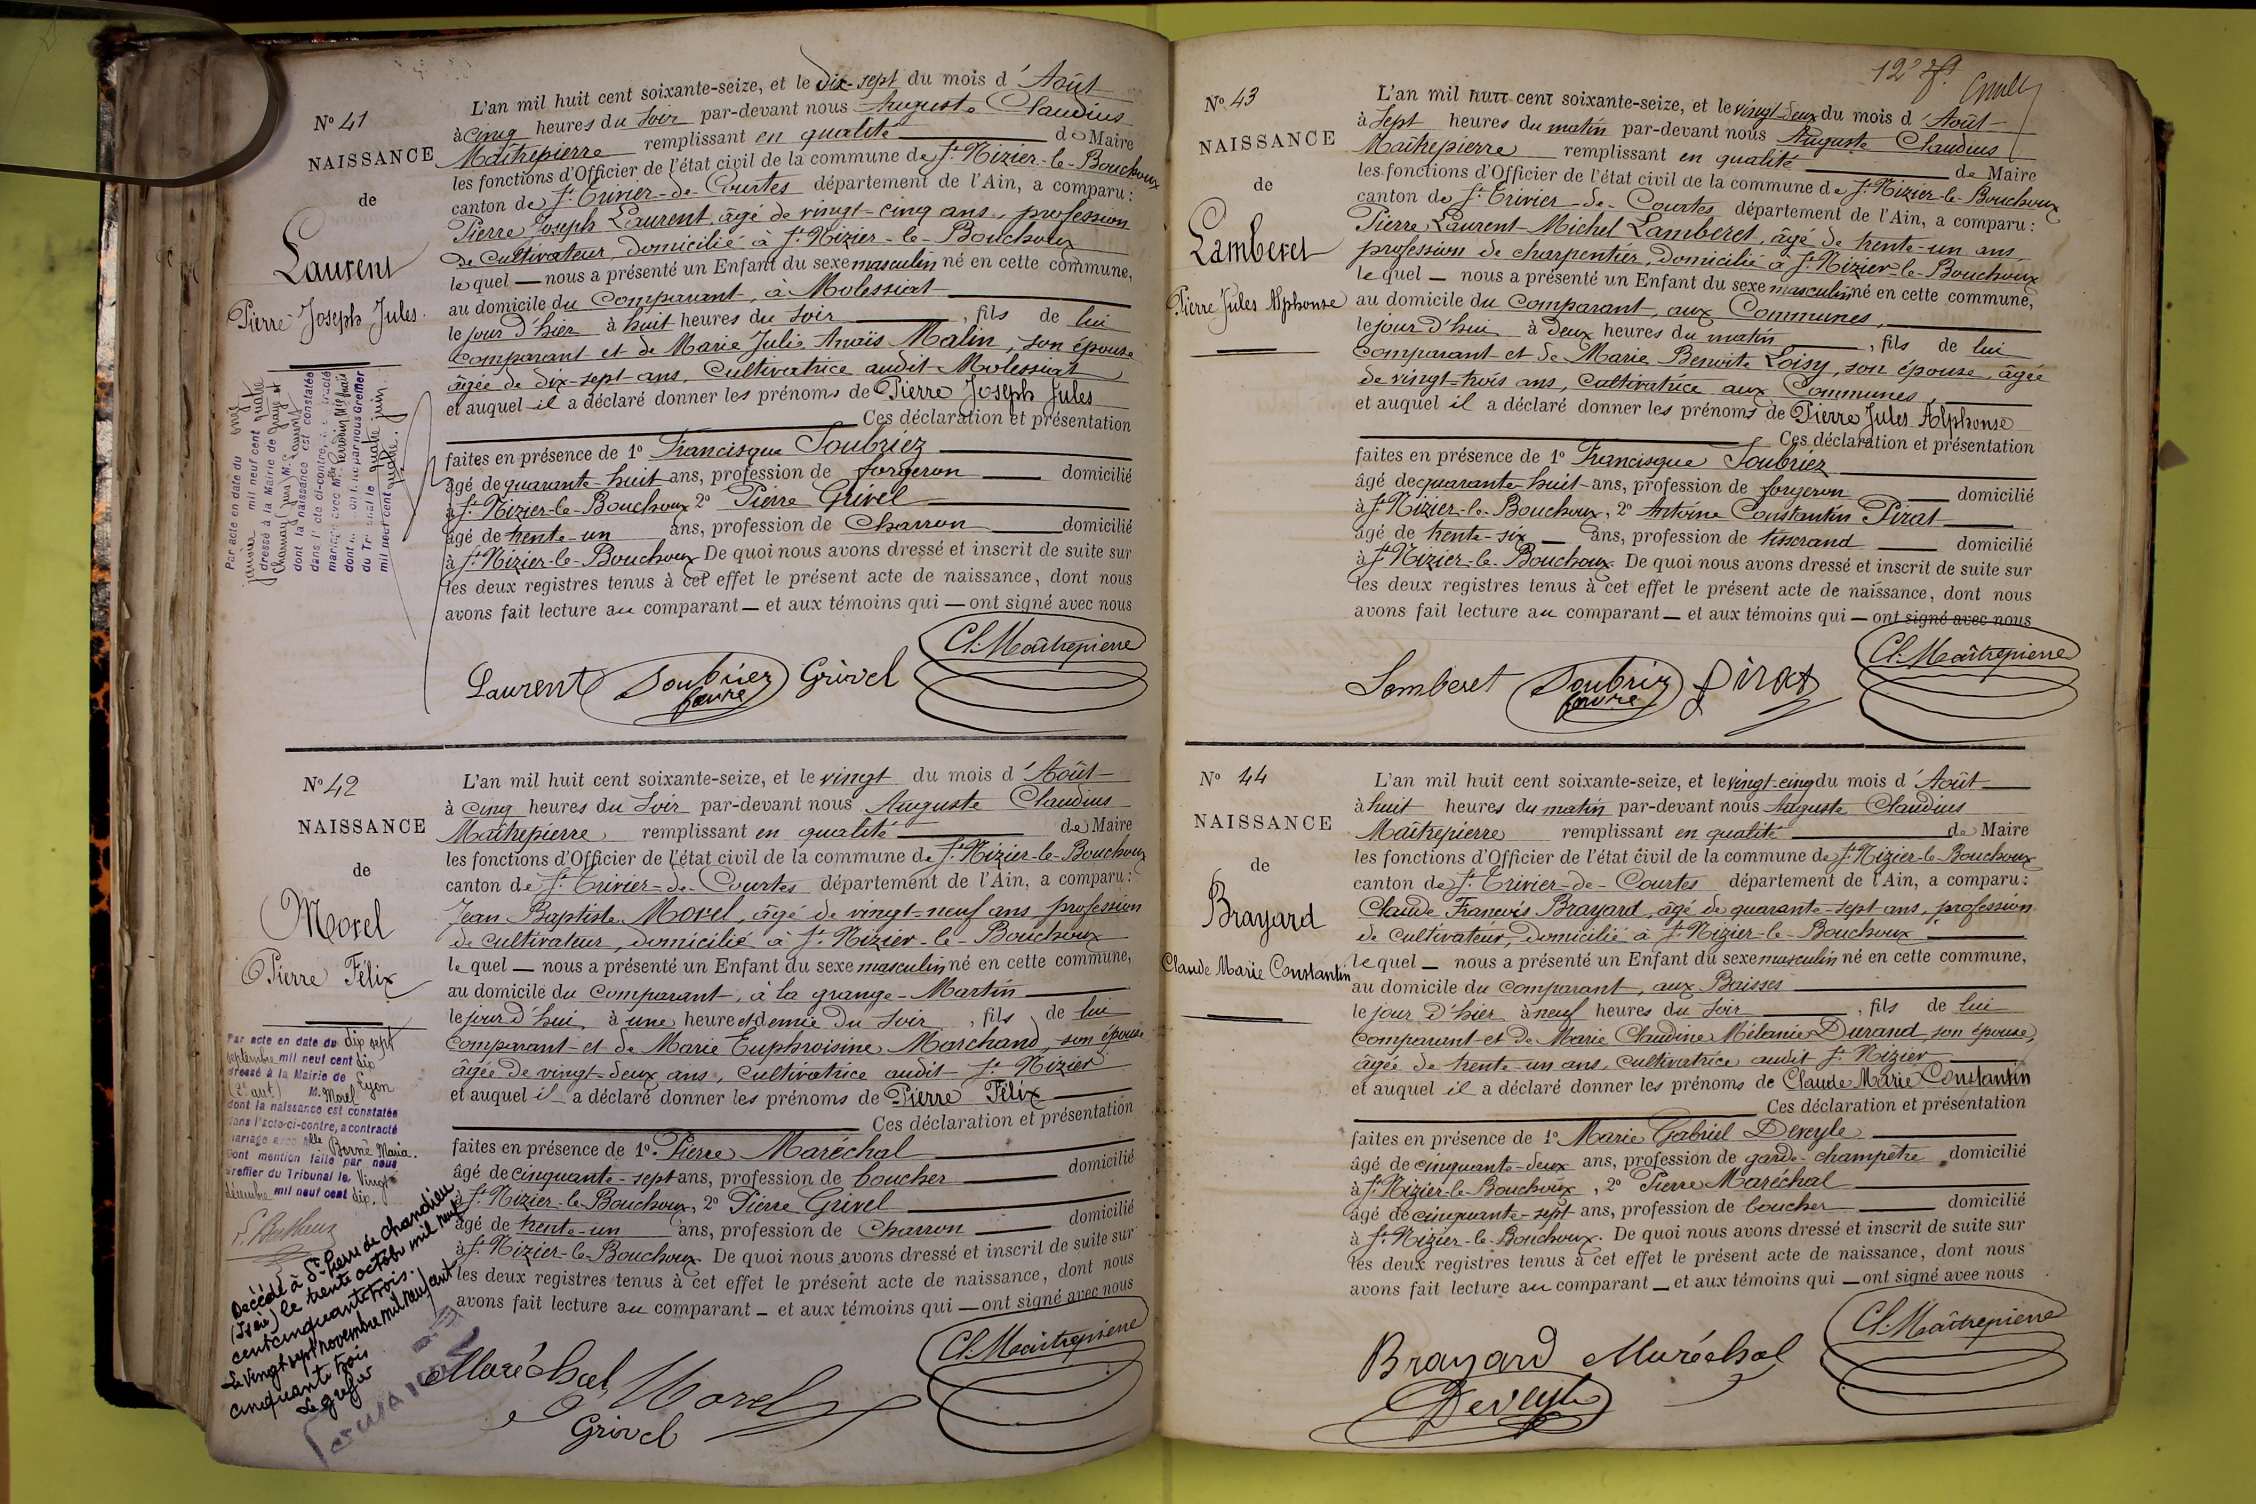 Nº 41
NAISSANCE
de
Laurent
Pierre Joseph Jules.
L'an mil huit cent soixante-seize, et le dix-sept du mois d'Août
à cinq heures du soir par-devant nous Auguste Claudius
Maîtrepierre remplissant en qualité de Maire
les fonctions d'Officier de l'état civil de la commune de St Nizier-le-Bouchoux
canton de St Trivier-de-Courtes département de l'Ain, a comparu :
Pierre Joseph Laurent, âgé de vingt-cinq ans, profession
de cultivateur, domicilié à St Nizier-le-Bouchoux
lequel — nous a présenté un Enfant du sexe masculin né en cette commune,
au domicile du comparant, à Molessiat
le jour d'hier à huit heures du soir , fils de lui
comparant et de Marie Julie Anaïs Malin, son épouse
âgée de dix-sept ans, cultivatrice audit Molessiat
et auquel il a déclaré donner les prénoms de Pierre Joseph Jules
Ces déclaration et présentation
faites en présence de 1º Francisque Soubriez
âgé de quarante-huit ans, profession de forgeron domicilié
à St Nizier-le-Bouchoux 2º Pierre Grivel
âgé de trente-un ans, profession de Charron domicilié
à St Nizier-le-Bouchoux De quoi nous avons dressé et inscrit de suite sur
les deux registres tenus à cet effet le présent acte de naissance, dont nous
avons fait lecture au comparant — et aux témoins qui — ont signé avec nous
Laurent Soubriez Grivel Cl. Maîtrepierre
favre
Par acte en date du onze
janvier mil neuf cent quatre
dressé à la Mairie de
dont la naissance est constatée
dans l'acte ci-contre, a contracté
mariage avec Mlle
du Tribunal le quatre juin
mil neuf cent quatre.
Nº 42
NAISSANCE
de
Morel
Pierre Félix
L'an mil huit cent soixante-seize, et le vingt du mois d'Août
à cinq heures du soir par-devant nous Auguste Claudius
Maîtrepierre remplissant en qualité de Maire
les fonctions d'Officier de l'état civil de la commune de St Nizier-le-Bouchoux
canton de St Trivier-de-Courtes département de l'Ain, a comparu :
Jean Baptiste Morel, âgé de vingt-neuf ans, profession
de cultivateur, domicilié à St Nizier-le-Bouchoux
lequel — nous a présenté un Enfant du sexe masculin né en cette commune,
au domicile du comparant, à la grange-Martin
le jour d'hui à une heure et demie du soir , fils de lui
comparant et de Marie Euphroisine Marchand, son épouse
âgée de vingt-deux ans, cultivatrice audit St Nizier
et auquel il a déclaré donner les prénoms de Pierre Félix
Ces déclaration et présentation
faites en présence de 1º Pierre Maréchal
âgé de cinquante-sept ans, profession de boucher domicilié
à St Nizier-le-Bouchoux, 2º Pierre Grivel
âgé de trente-un ans, profession de Charron domicilié
à St Nizier-le-Bouchoux. De quoi nous avons dressé et inscrit de suite sur
les deux registres tenus à cet effet le présent acte de naissance, dont nous
avons fait lecture au comparant — et aux témoins qui — ont signé avec nous
Maréchal Morel Cl. Maîtrepierre
Grivel
Par acte en date du dix sept
septembre mil neuf cent dix
dressé à la Mairie de Lyon
(3e arrt) M. Morel
dont la naissance est constatée
dans l'acte ci-contre, a contracté
mariage avec Mlle Borne Maria.
Dont mention faite par nous
Greffier du Tribunal le Vingt
décembre mil neuf cent dix.
Décédé à St Pierre de Chandieu
(Isère) le trente octobre mil neuf
cent cinquante trois.
Le vingt sept novembre mil neuf cent
cinquante trois
Le greffier
Nº 43
NAISSANCE
de
Lamberet
Pierre Jules Alphonse
12e
L'an mil huit cent soixante-seize, et le vingt-deux du mois d'Août
à sept heures du matin par-devant nous Auguste Claudius
Maîtrepierre remplissant en qualité de Maire
les fonctions d'Officier de l'état civil de la commune de St Nizier-le-Bouchoux
canton de St Trivier-de-Courtes département de l'Ain, a comparu :
Pierre Laurent Michel Lamberet, âgé de trente-un ans,
profession de charpentier, domicilié à St Nizier-le-Bouchoux
lequel — nous a présenté un Enfant du sexe masculin né en cette commune,
au domicile du comparant, aux Communes,
le jour d'hui à deux heures du matin , fils de lui
comparant et de Marie Benoite Loisy, son épouse, âgée
de vingt-trois ans, cultivatrice aux Communes,
et auquel il a déclaré donner les prénoms de Pierre Jules Alphonse
Ces déclaration et présentation
faites en présence de 1º Francisque Soubriez
âgé de quarante-huit ans, profession de forgeron domicilié
à St Nizier-le-Bouchoux, 2º Antoine Constantin Pirat
âgé de trente-six — ans, profession de tisserand domicilié
à St Nizier-le-Bouchoux. De quoi nous avons dressé et inscrit de suite sur
les deux registres tenus à cet effet le présent acte de naissance, dont nous
avons fait lecture au comparant — et aux témoins qui — ont signé avec nous
Lamberet Soubriez Pirat Cl. Maîtrepierre
favre
Nº 44
NAISSANCE
de
Brayard
Claude Marie Constantin
L'an mil huit cent soixante-seize, et le vingt-cinq du mois d'Août
à huit heures du matin par-devant nous Auguste Claudius
Maîtrepierre remplissant en qualité de Maire
les fonctions d'Officier de l'état civil de la commune de St Nizier-le-Bouchoux
canton de St Trivier-de-Courtes département de l'Ain, a comparu :
Claude François Brayard, âgé de quarante-sept ans, profession
de cultivateur, domicilié à St Nizier-le-Bouchoux
lequel — nous a présenté un Enfant du sexe masculin né en cette commune,
au domicile du comparant, aux Baisses
le jour d'hier à neuf heures du soir , fils de lui
comparant et de Marie Claudine Mélanie Durand, son épouse,
âgée de trente-un ans, cultivatrice audit St Nizier
et auquel il a déclaré donner les prénoms de Claude Marie Constantin
Ces déclaration et présentation
faites en présence de 1º Marie Gabriel Deveyle
âgé de cinquante-deux ans, profession de garde-champêtre domicilié
à St Nizier-le-Bouchoux, 2º Pierre Maréchal
âgé de cinquante-sept ans, profession de boucher domicilié
à St Nizier-le-Bouchoux. De quoi nous avons dressé et inscrit de suite sur
les deux registres tenus à cet effet le présent acte de naissance, dont nous
avons fait lecture au comparant — et aux témoins qui — ont signé avec nous
Brayard Maréchal Cl. Maîtrepierre
Deveyle